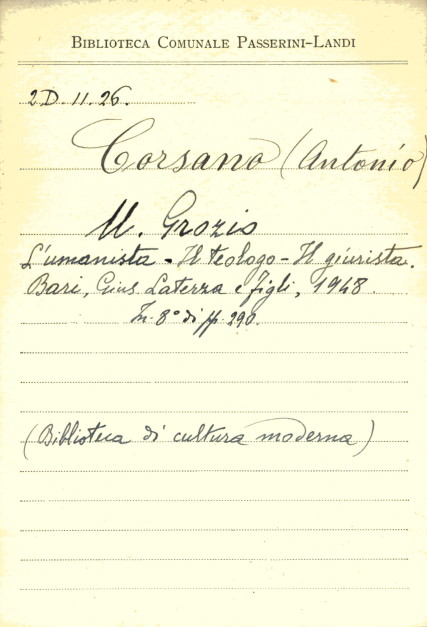 BIBLIOTECA COMUNALE PASSERINI-LANDI
2D.11.26.
Corsano (Antonio)
U. Grozio
L'umanista - Il teologo - Il giurista.
Bari, Gius. Laterza e figli, 1948.
In 8° di pp. 290.
(Biblioteca di cultura moderna)